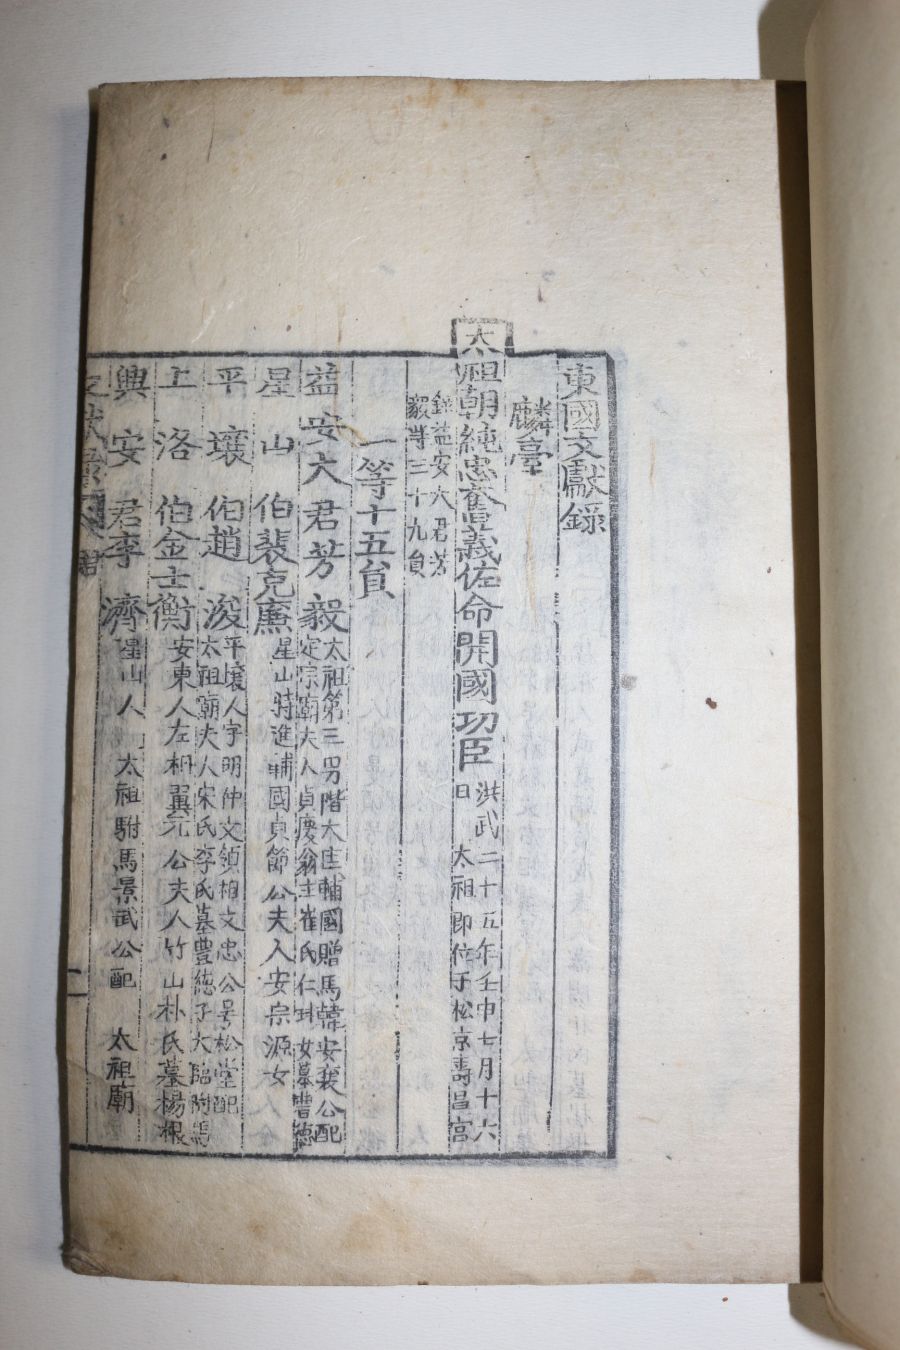 東國文獻錄
麟臺
太祖朝純忠奮義佐命開國功臣洪武二十五年壬申七月十六
日 太祖卽位于松京壽昌宮
錄益安大君芳
毅等三十九負
一等十五負
益安大君芳毅太祖第三男階大匡輔國贈馬韓安襄公配
定宗廟夫人貞慶翁主崔氏仁㺶女墓豊德
星山伯裴克廉星山特進輔國貞節公夫人安宗源女
平壤伯趙浚平壤人字明仲文領相文忠公号松堂配
太祖廟夫人宋氏李氏墓豊德子大臨附馬
上洛伯金士衡安東人左相翼元公夫人竹山朴氏墓楊根
興安君李濟星山人 太祖駙馬景武公配 太祖廟
二